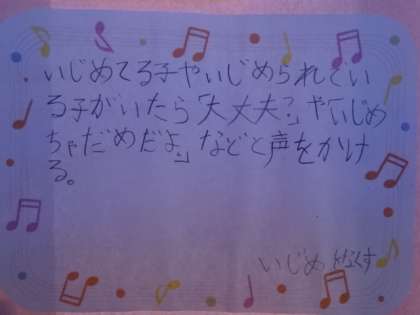 いじめてる子やいじめられてい
る子がいたら「大丈夫?」や「いじめ
ちゃだめだよ。」などと声をかけ
る。
いじめ をなくす